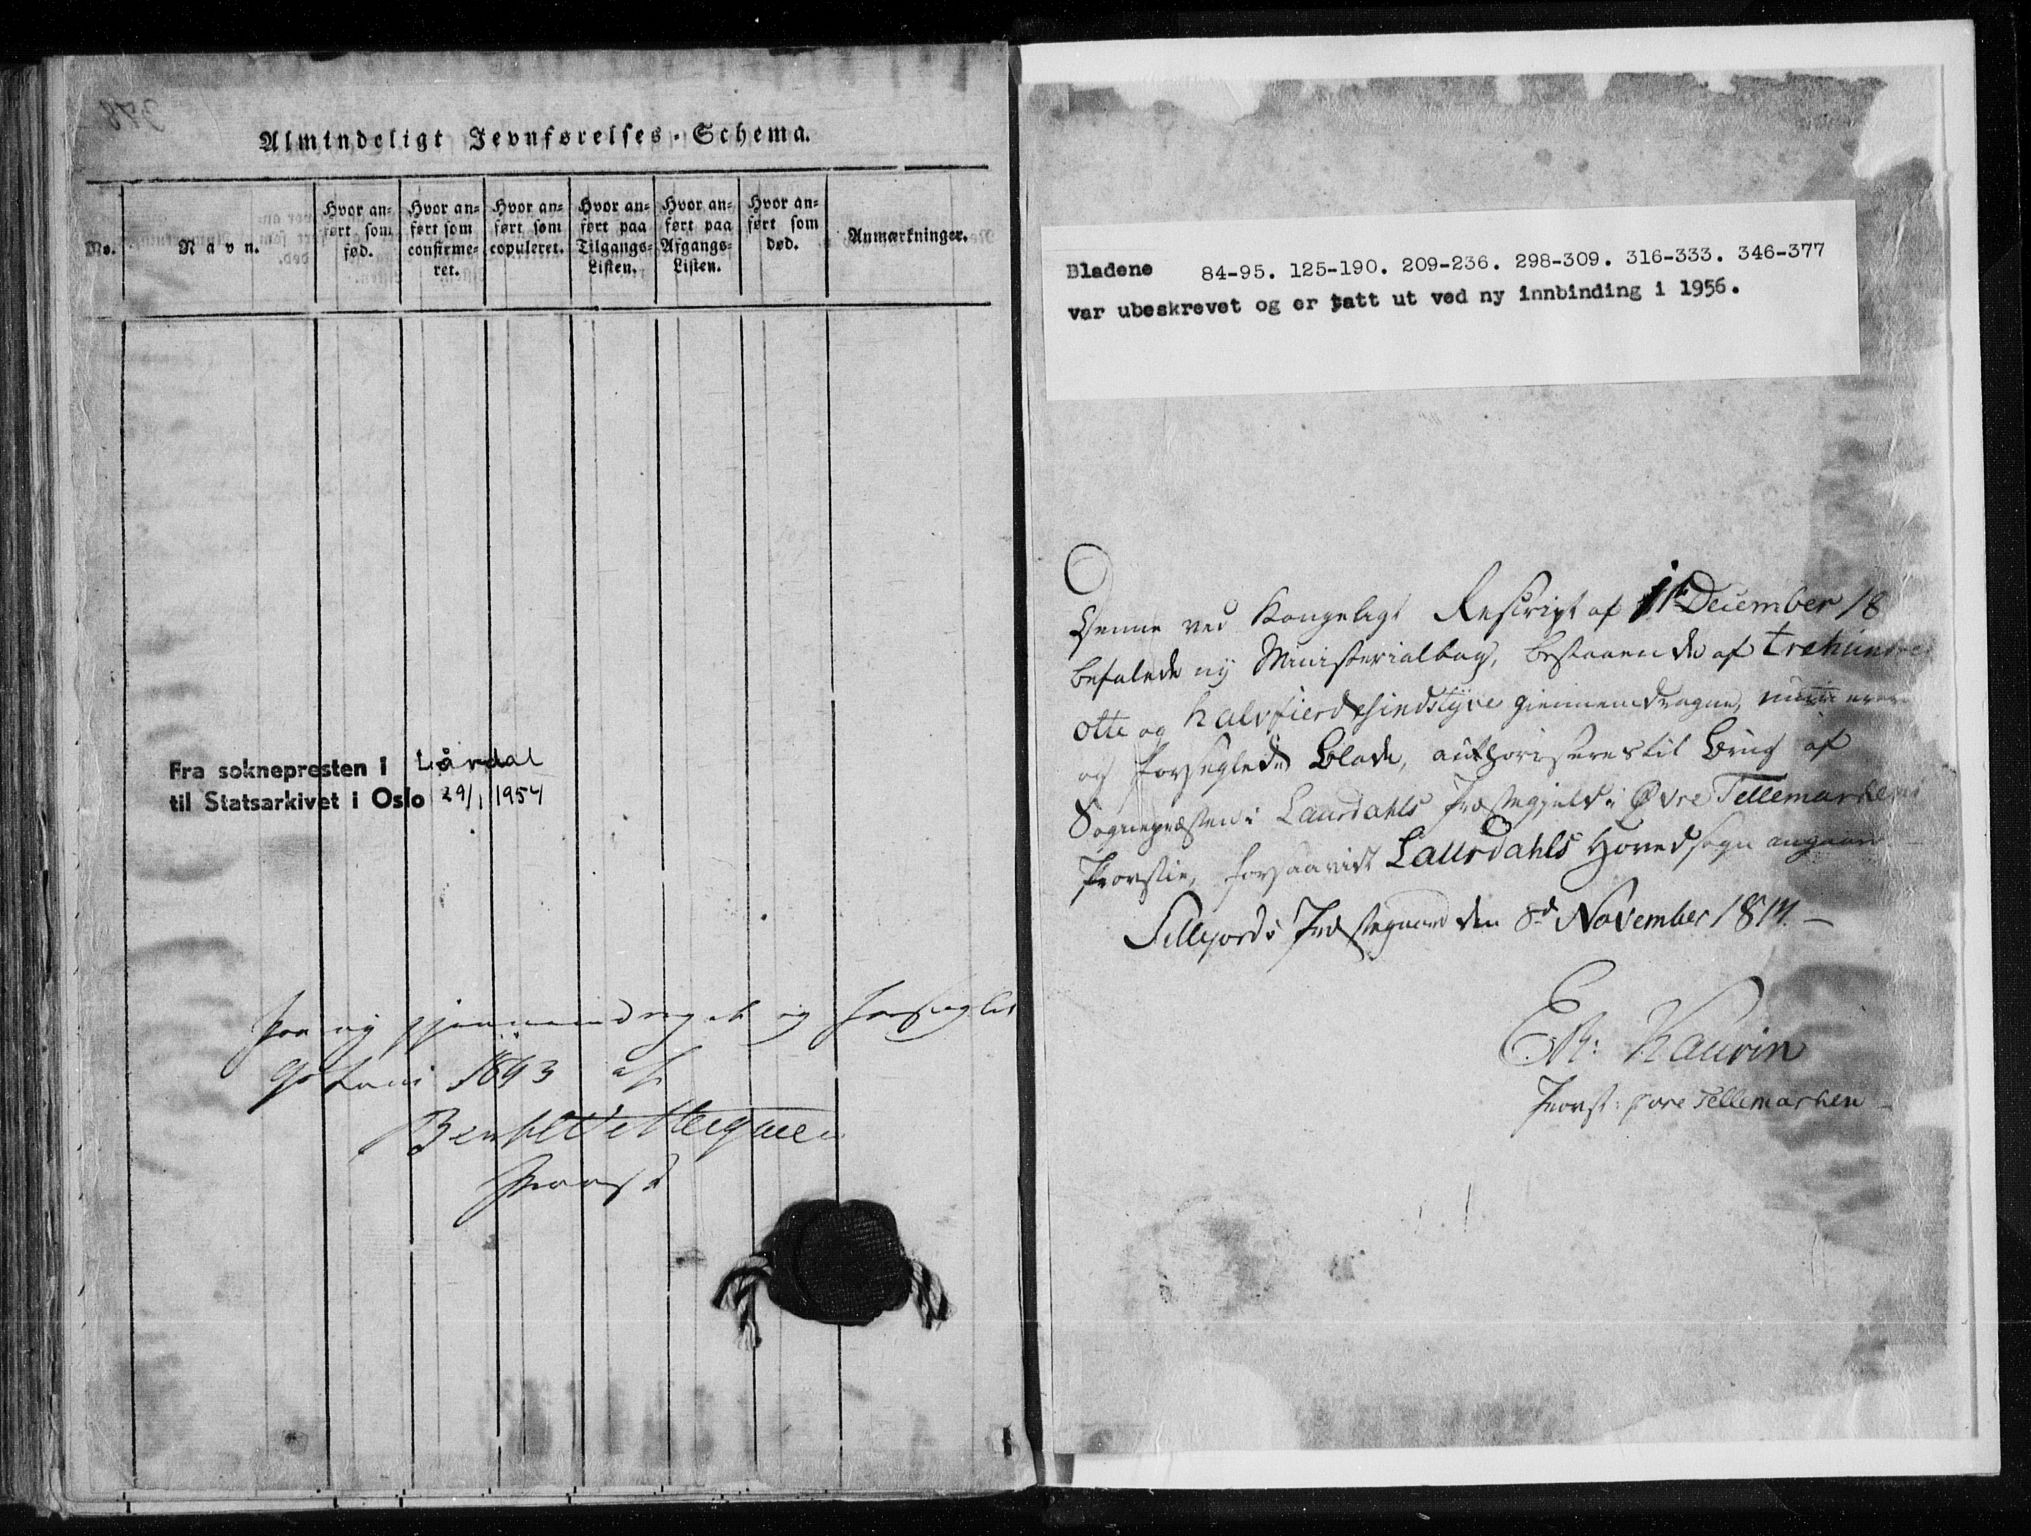 378
Almindeligt Jevnførelses-Schema.
No.
Navn.
Hvor an-
ført som
fød.
Hvor an-
ført som
confirme-
ret.
Hvor an-
ført som
copuleret.
Hvor an-
ført paa
Tilgangs-
Listen.
Hvor an-
ført paa
Afgangs-
Listen.
Hvor an-
ført som
død.
Anmærkninger.
Fra soknepresten i Lårdal
til Statsarkivet i Oslo 29/1 1954
Paa ny gjennemdraget og forseglet
Juni 1863 af
Provst
Bladene 84-95. 125-190. 209-236. 298-309. 316-333. 346-377
var ubeskrevet og er tatt ut ved ny innbinding i 1956.
Denne ved Kongeligt Rescript af 1ste December 18
befalede ny Ministerialbog, bestaaende af trehundrede
otte og halvfierdesindstyve giennemdragne, numererede
og forseglede Blade, authoriseres til Brug af
Sognepræsten i Laurdahls Præstegjeld i Øvre Tellemarkens
Provstie, forsaavidt Laurdahls Hovedsogn angaaer
Sillejords Præstegaard den 8d November 1814.
E M: Kaurin
Provst i øvre Tellemarken